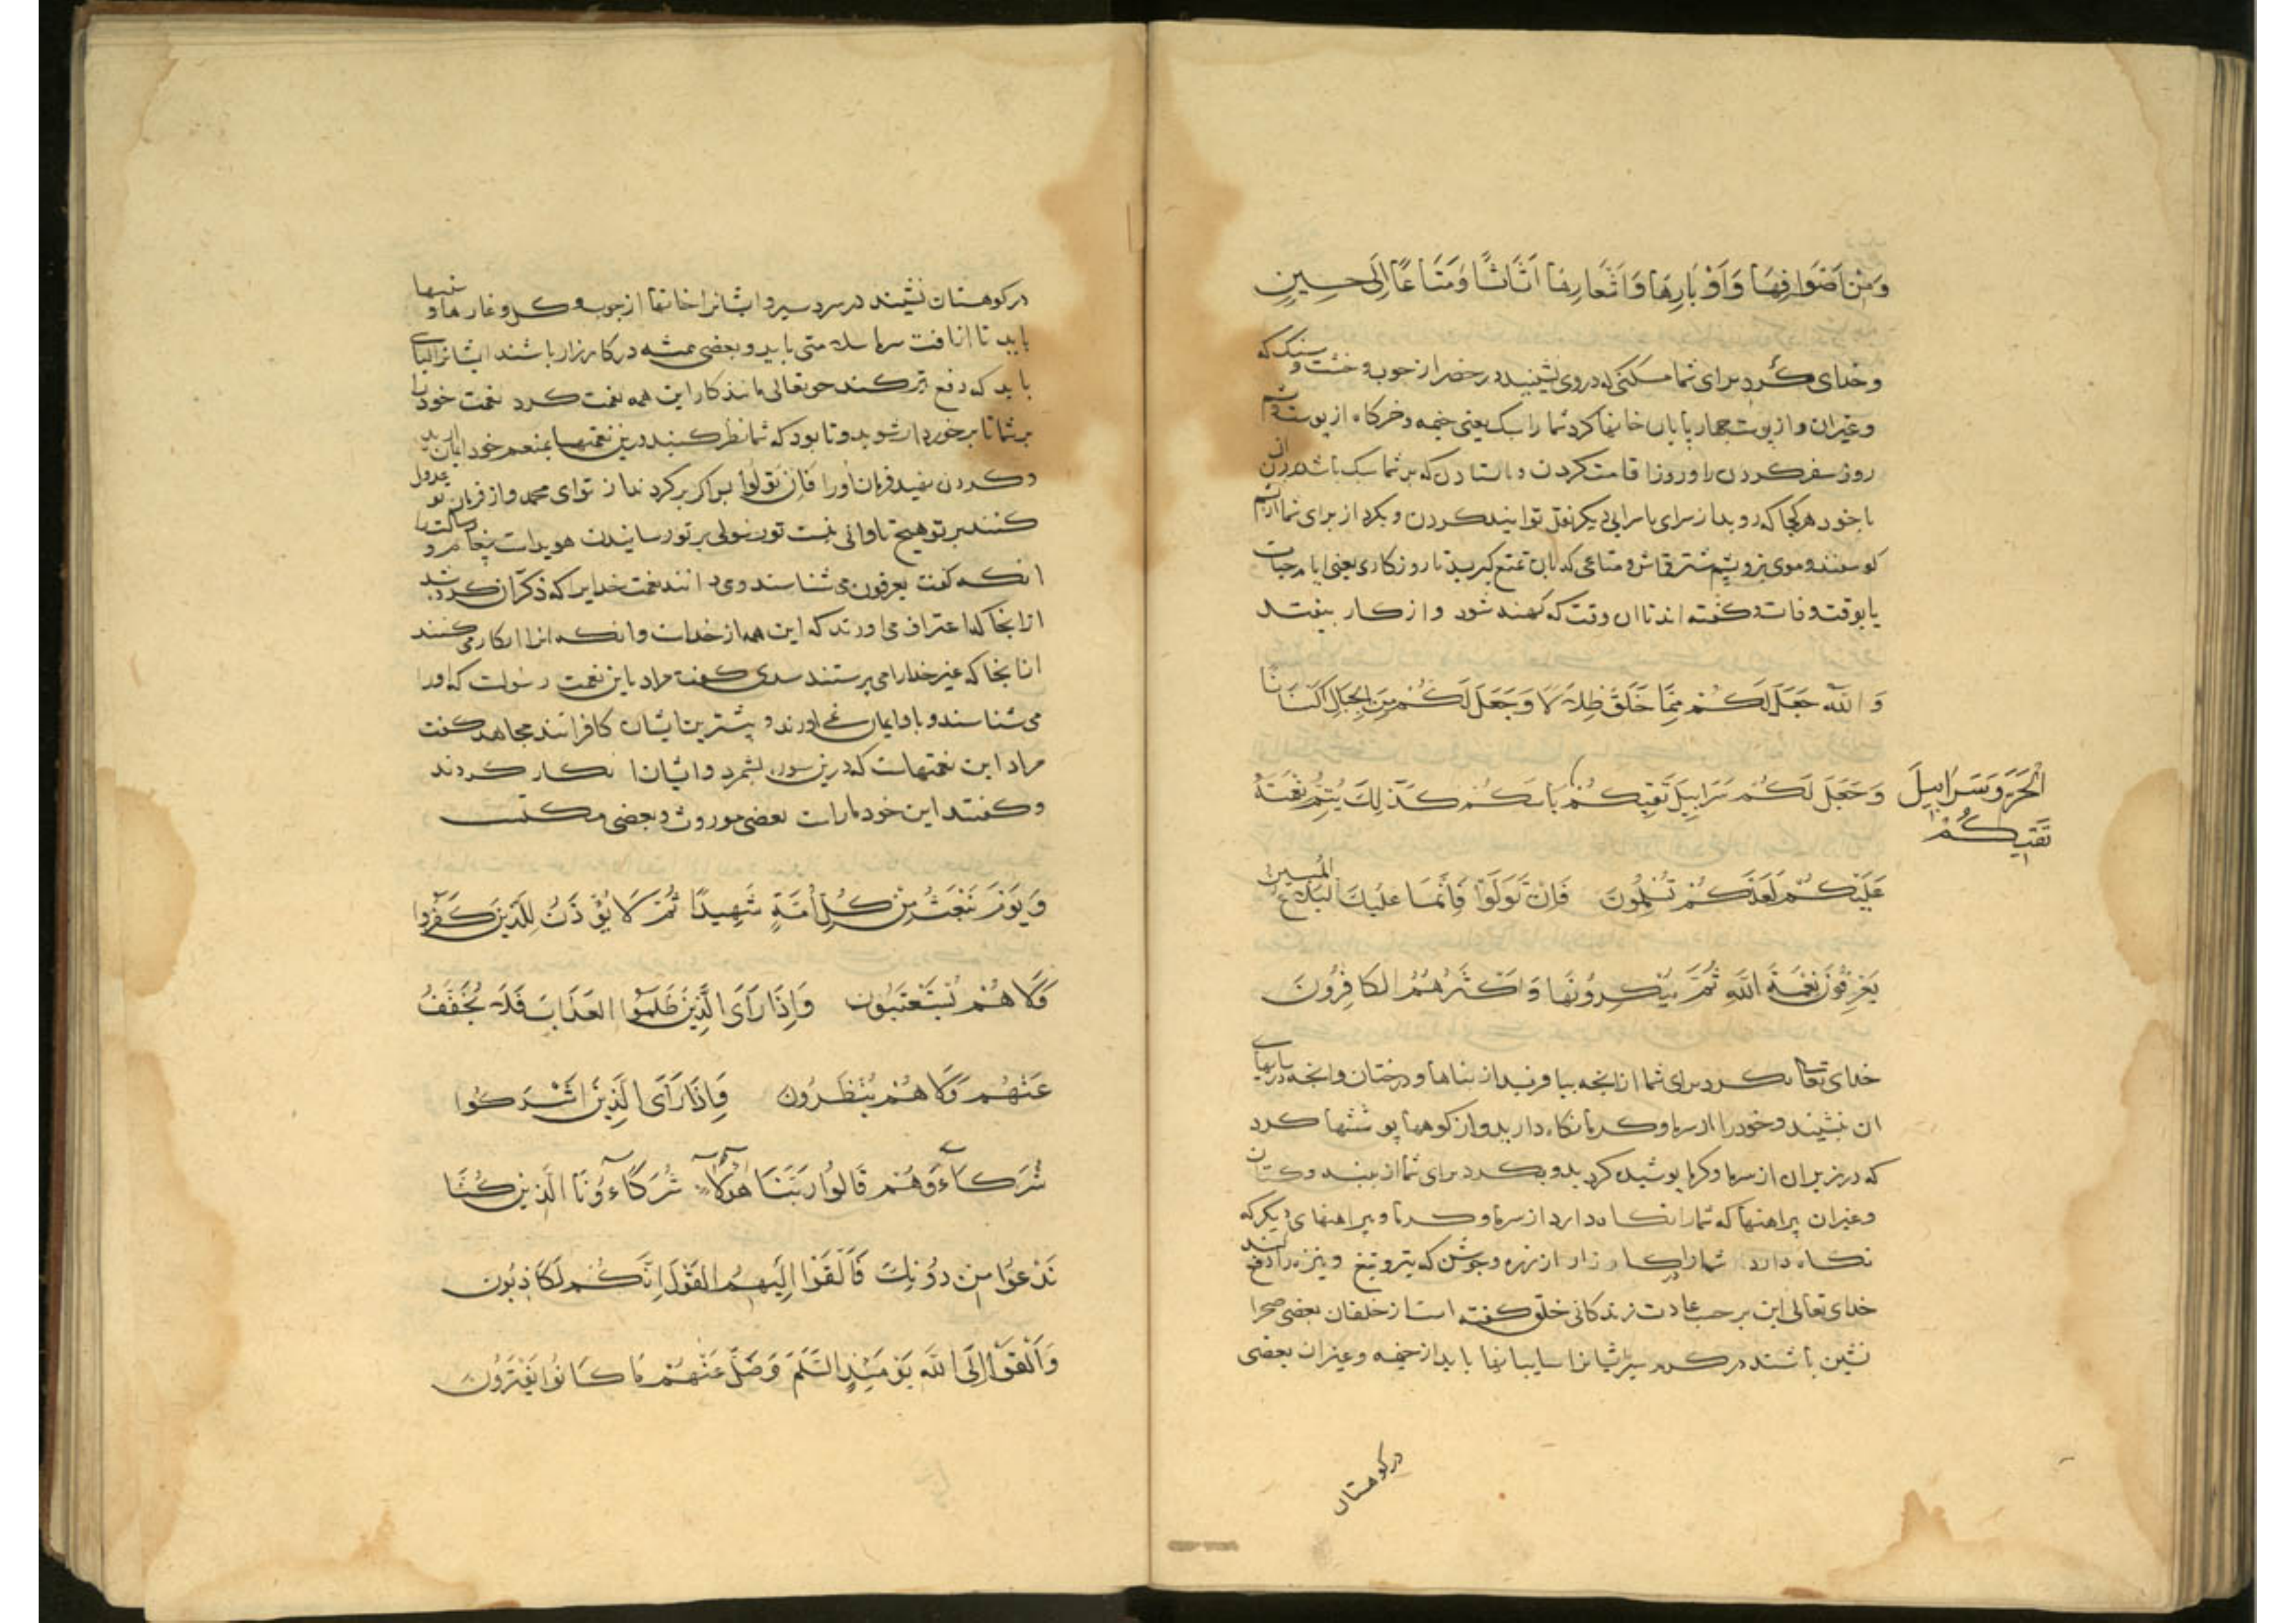 وَمِنْ اَصْوَافِهَا وَاَوْبَارِهَا وَاَشْعَارِهَا اَثَاثًا وَمَتَاعًا اِلَى حِينٍ
وخدای کرد برای شما مسکنی که دروی نشینید در حضر از چوب و خشت و سنگ که
وغیران و از پوست چهارپایان خانها کرد شما را سبک یعنی خیمه و خرگاه از پوست و پشم
روز سفر کردن را و روز اقامت کردن و ایستادن که بر شما سبک باشد بردن ان
با خود هر کجا که روید از سرای با سرای دیگر نقل توانید کردن و بکرد از برای شما از پشم
کوسفند و موی بز و پشم شتر قماش و متاعی که بان تمتع کیرید تا روزکاری یعنی ایام حیات
یا بوقت وفات و کفته اند تا ان وقت که کهنه شود و از کار بیفتد
وَاللّٰهُ جَعَلَ لَكُمْ مِمَّا خَلَقَ ظِلَالًا وَجَعَلَ لَكُمْ مِنَ الْجِبَالِ اَكْنَانًا
وَجَعَلَ لَكُمْ سَرَابِيلَ تَقِيكُمْ بَاْسَكُمْ كَذٰلِكَ يُتِمُّ نِعْمَتَهُ
الْحَرَّ وَسَرَابِيلَ
تَقِيكُمْ
عَلَيْكُمْ لَعَلَّكُمْ تُسْلِمُونَ فَاِنْ تَوَلَّوْا فَاِنَّمَا عَلَيْكَ الْبَلَاغُ الْمُبِينُ
يَعْرِفُونَ نِعْمَةَ اللّٰهِ ثُمَّ يُنْكِرُونَهَا وَاَكْثَرُهُمُ الْكَافِرُونَ
خدای تعالی بکرد برای شما از انچه بیافرید از بناها و درختان وانچه در سایهای
ان نشینید و خود را از سرما و کرما نکاه دارید و از کوهها پوششها کرد
که در زیر ان از سرما و کرما پوشیده کردید و بکرد برای شما از پنبه و کتان
وغیران پیراهنها که شما را نکاه دارد از سرما و کرما و پیراهنهای دیکر که
نکاه دارد شما را در کارزار از زره و جوشن که تیر و تیغ و نیزه را دفع کند
خدای تعالی این بر حسب عادت زندکانی خلق کفته است از خلقان بعضی صحرا
نشین باشند در کرم سیر ایشانرا سایبانها باید از خیمه و غیران بعضی
درکوهستان
درکوهستان نشینند در سردسیر و ایشانرا خانها از چوب و کل و غارها و
باید تا از افت سرما سلامتی یابد و بعضی همیشه در کارزار باشند ایشانرا لباسی
باید که دفع تیر کند حق تعالی مانند کار این همه نعمت کرد نعمت خود را
بر شما تا برخوردار شوید و تا بود که شما نظر کنید درین نعمتها بمنعم خود ایمان ارید
و کردن نهید فرمان اورا فَاِنْ تَوَلَّوْا پس اکر برکردند از تو ای محمد و از فرمان تو عدول
کنند بر تو هیچ تاوانی نیست تو رسولی بر تو رسانیدن هویداست
انکه کفت یعرفون می شناسند و می دانند نعمت خدایرا که ذکر ان کرده شد
از انجا که اعتراف می اورند که این همه از خداست وانکه انرا انکار می کنند
از انجا که غیر خدا را می پرستند سدی کفت مراد باین نعمت رسولست که اورا
می شناسند و باو ایمان نمی اورند و بیشترین ایشان کافرانند مجاهد کفت
مراد این نعمتهاست که درین سوره بشمرد و ایشان انکار کردند
و کفتند این خود ما راست بعضی موروث و بعضی مکتسب
وَيَوْمَ نَبْعَثُ مِنْ كُلِّ اُمَّةٍ شَهِيدًا ثُمَّ لَا يُؤْذَنُ لِلَّذِينَ كَفَرُوا
وَلَا هُمْ يُسْتَعْتَبُونَ وَاِذَا رَاَى الَّذِينَ ظَلَمُوا الْعَذَابَ فَلَا يُخَفَّفُ
عَنْهُمْ وَلَا هُمْ يُنْظَرُونَ وَاِذَا رَاَى الَّذِينَ اَشْرَكُوا
شُرَكَاءَهُمْ قَالُوا رَبَّنَا هٰؤُلَاءِ شُرَكَاؤُنَا الَّذِينَ كُنَّا
نَدْعُوا مِنْ دُونِكَ فَاَلْقَوْا اِلَيْهِمُ الْقَوْلَ اِنَّكُمْ لَكَاذِبُونَ
وَاَلْقَوْا اِلَى اللّٰهِ يَوْمَئِذٍ السَّلَمَ وَضَلَّ عَنْهُمْ مَا كَانُوا يَفْتَرُونَ